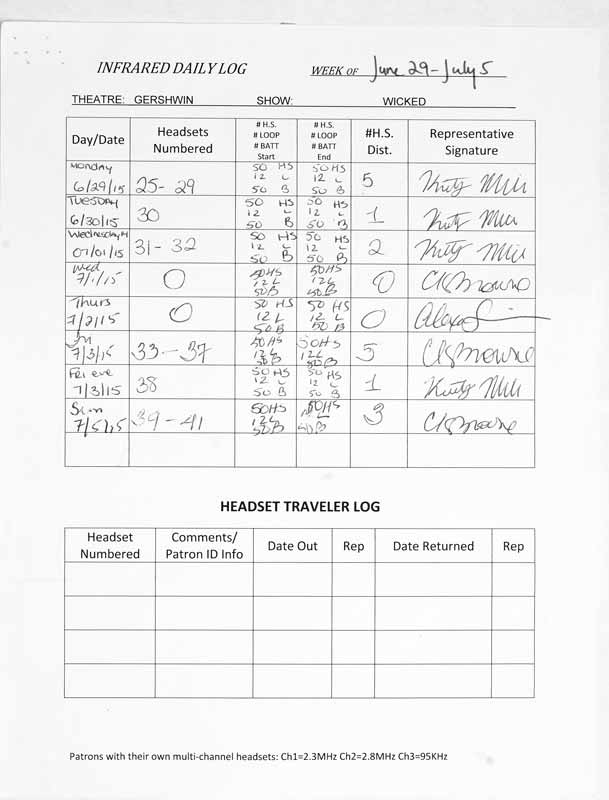 INFRARED DAILY LOG WEEK OF June 29-July 5
THEATRE: GERSHWIN SHOW: WICKED
Day/Date Headsets Numbered # H.S. # LOOP # BATT Start # H.S. # LOOP # BATT End #H.S. Dist. Representative Signature
MONDAY 6/29/15 25-29 50 HS 12 L 50 B 50 HS 12 L 50 B 5
TUESDAY 6/30/15 30 50 HS 12 L 50 B 50 HS 12 L 50 B 1
Wednesday M 07/01/15 31-32 50 HS 12 L 50 B 50 HS 12 L 50 B 2
Wed 7/1/15 0 50HS 12L 50B 50HS 12L 50B 0
Thurs 7/2/15 0 50 HS 12 L 50 B 50 HS 12 L 50 B 0
Fri 7/3/15 33-37 50HS 12L 50B 50HS 12L 50B 5
Fri eve 7/3/15 38 50 HS 12 L 50 B 50 HS 12 L 50 B 1
Sun 7/5/15 39-41 50HS 12L 50B 50HS 12L 50B 3
HEADSET TRAVELER LOG
Headset Numbered Comments/ Patron ID Info Date Out Rep Date Returned Rep
Patrons with their own multi-channel headsets: Ch1=2.3MHz Ch2=2.8MHz Ch3=95KHz